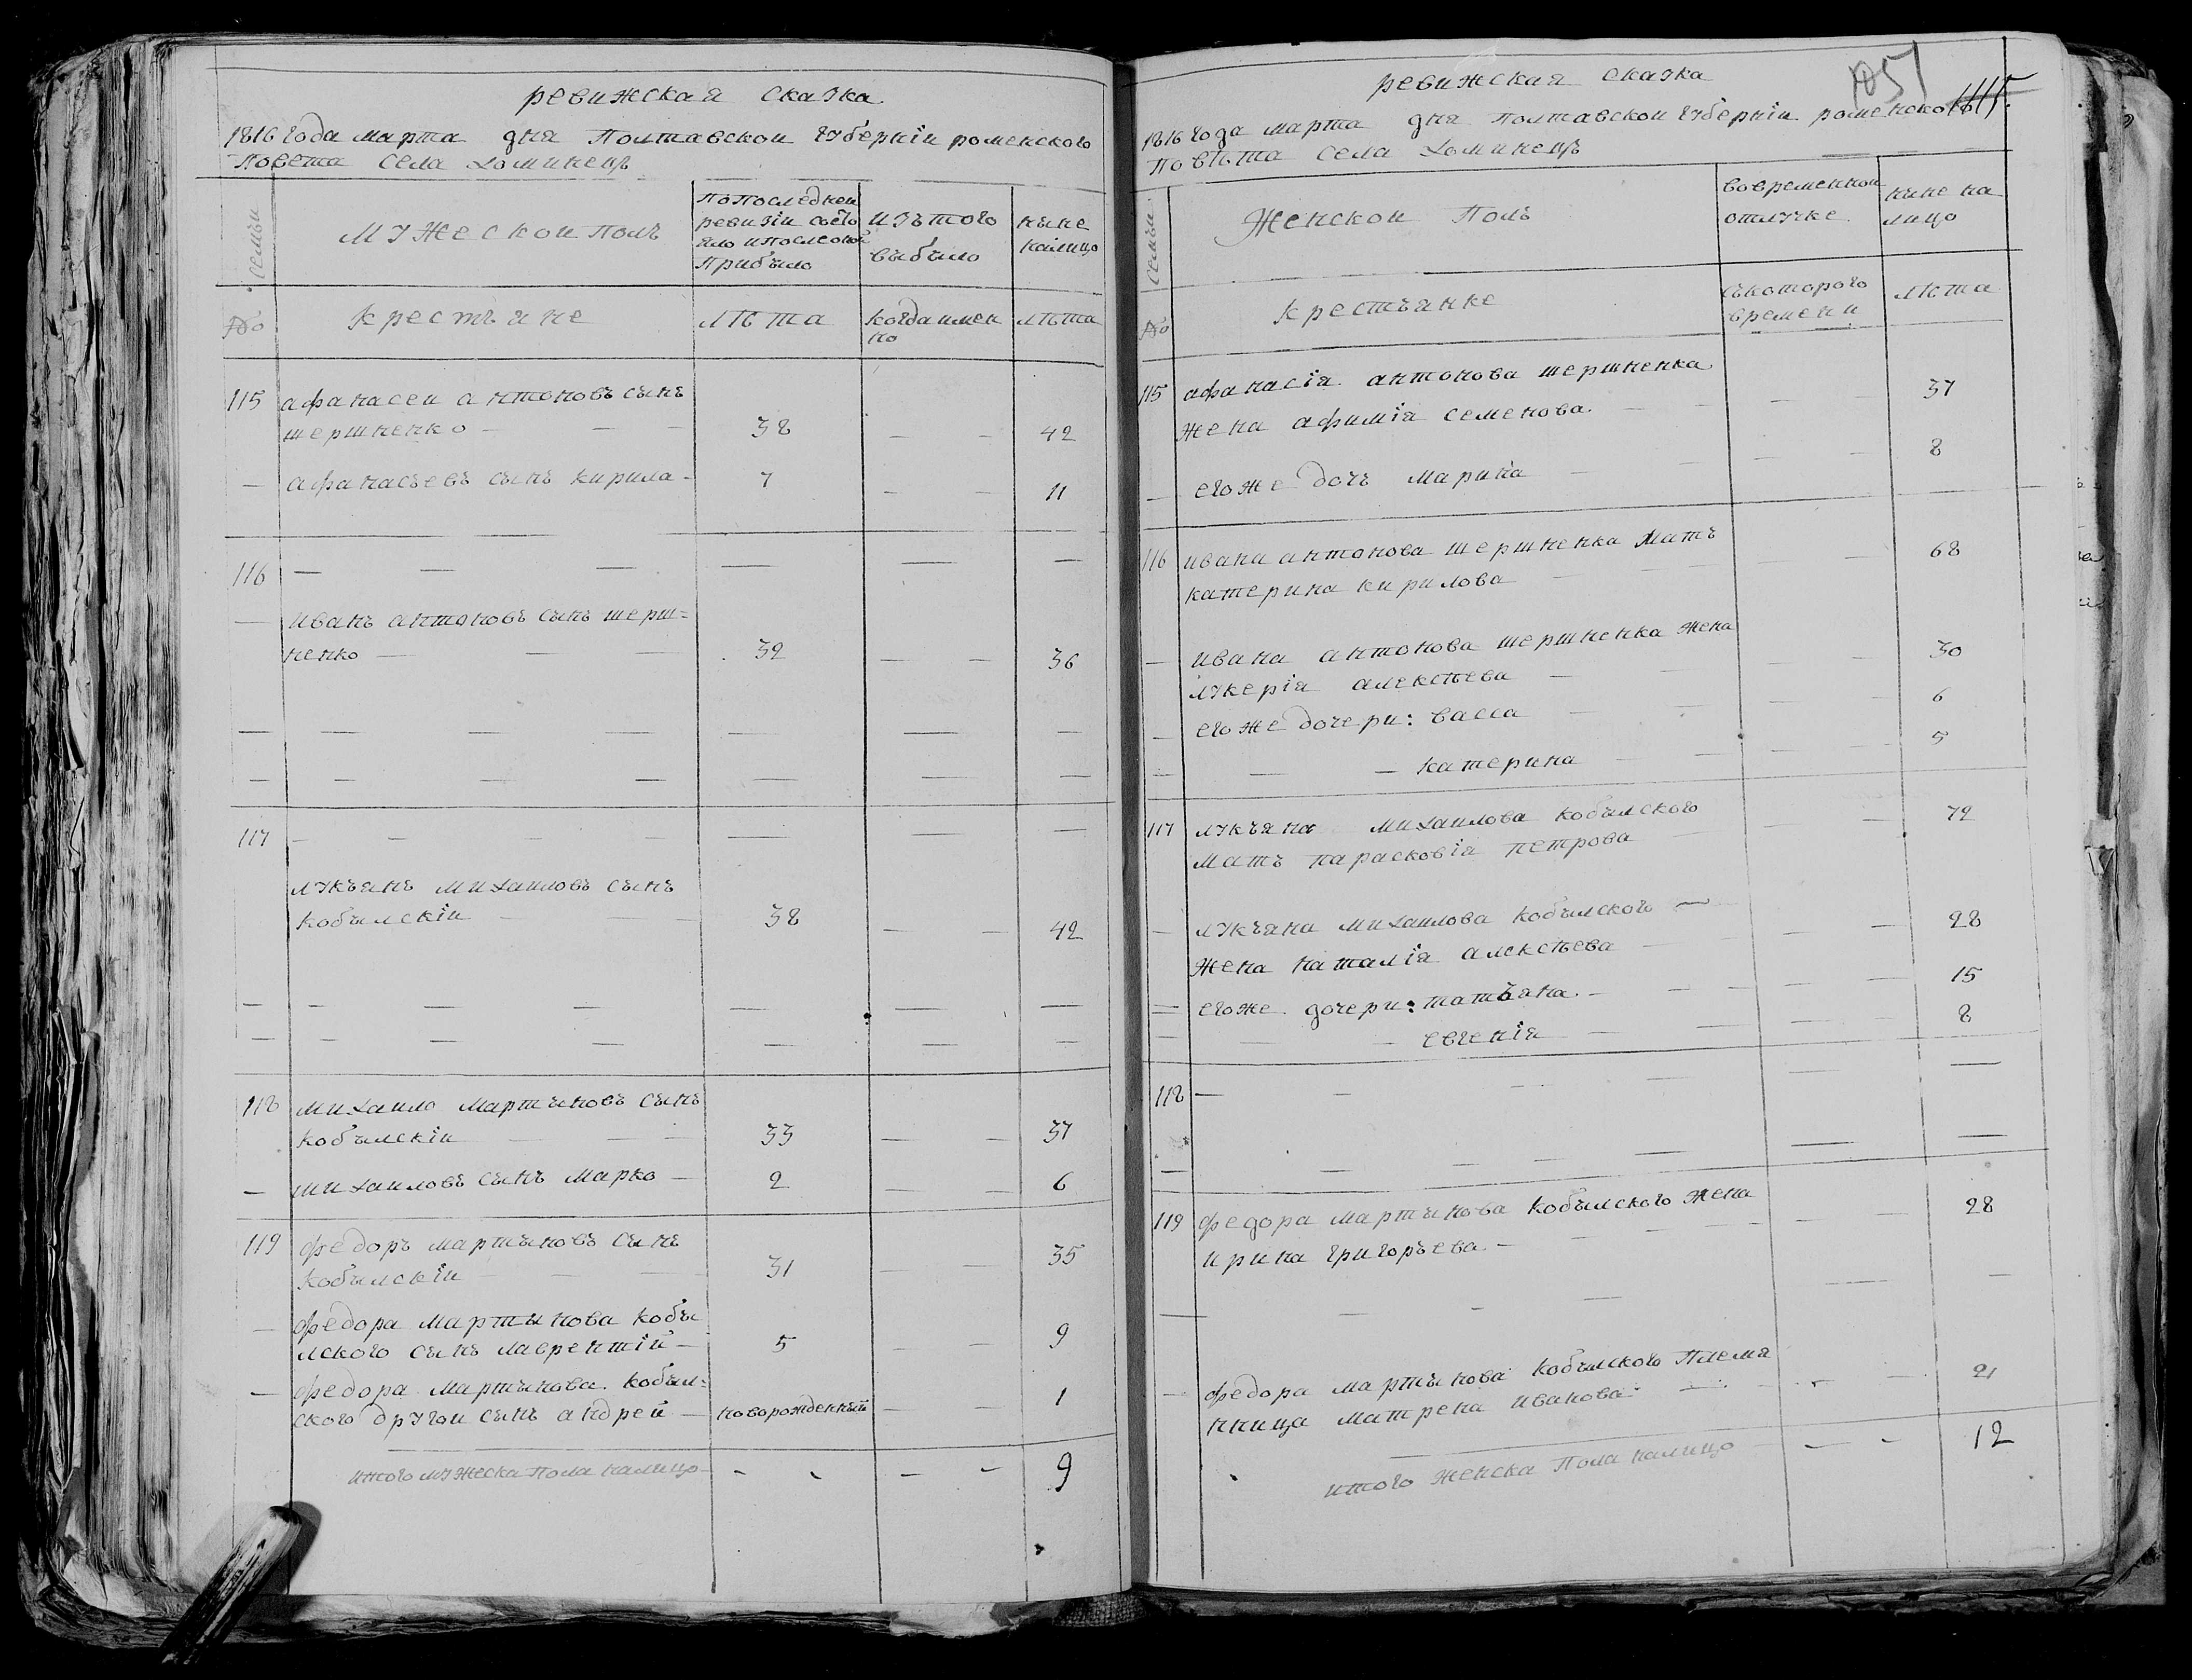 ревижская сказка
1816 года марта дня Полтавской губерніи роменского
Повета села Хоминецъ
семьи
Мужеской полъ
по последней
ревизіи состо
яло и после оной
прибыло
изъ того
выбыло
ныне
налицо
№
крестьяне
лѣта
когда имен
но
лѣта
115 афанасей антоновъ сынъ
шершненко — — — 38 — — 42
— афанасьевъ сынъ кирила - 7 — — 11
116 — — — — — —
— иванъ антоновъ сынъ шерш=
ненко — — — 32 — — 36
— — — — — — —
— — — — — — —
117 — — — — — — —
лукъянъ михаиловъ сынъ
кобылскіи — — 38 — — 42
— — — — — — —
— — — — — — —
118 михаило мартыновъ сынъ
кобылскіи — — 33 — — 37
— михаиловъ сынъ марко — 2 — — 6
119 федоръ мартыновъ сынъ
кобылскіи — — 31 — — 35
— федора мартынова кобы
лского сынъ лаврентій — 5 — — 9
— федора мартынова кобыл=
ского другои сынъ андрей — новорожденный — — 1
итого мужеска пола налицо - - - - - 9
ревижская сказка
1051
1115.
1816 года марта дня полтавской губерніи роменского
повѣта села Хоминецъ
семьи
Женской полъ
во временной
отлучке
ныне на
лицо
№
крестьянке
съ котораго
времени
лѣта
115 афанасія антонова шершненка
жена афимія семенова. — — — — 37
— его же дочь марина — — — — 8
116 ивана антонова шершненка мать
катерина кирилова — — — — 68
— ивана антонова шершненка жена
лукерія алексѣева — — — 30
— его же дочери: васса — — — — 6
— — — катерина — — — — 5
117 лукъяна михаилова кобылского
мать парасковія петрова — — — 72
— лукъяна михаилова кобылского —
жена наталія алексѣева — — — 28
— его же дочери: татьяна. — — — — 15
— — - евгенія — — — — 8
118 — — - — — — —
— — - - — — —
119 федора мартынова кобылского жена
ирина григорьева — — — — — 28
— — - — — —
— федора мартынова кобылского племя
нница матрена иванова — — — — 21
итого женска пола налицо — - - 12